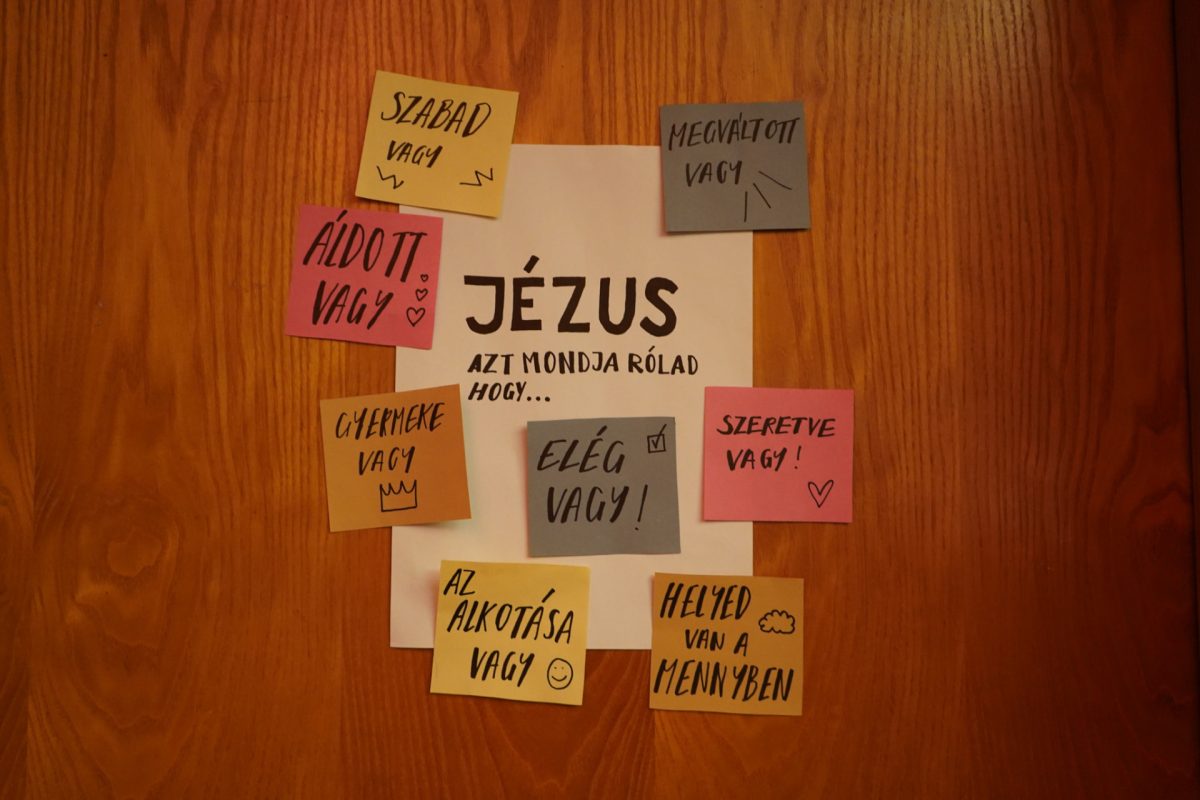 SZABAD
VAGY
MEGVÁLTOTT
VAGY
ÁLDOTT
VAGY
JÉZUS
AZT MONDJA RÓLAD
HOGY...
GYERMEKE
VAGY
ELÉG
VAGY!
SZERETVE
VAGY!
AZ
ALKOTÁSA
VAGY
HELYED
VAN A
MENNYBEN